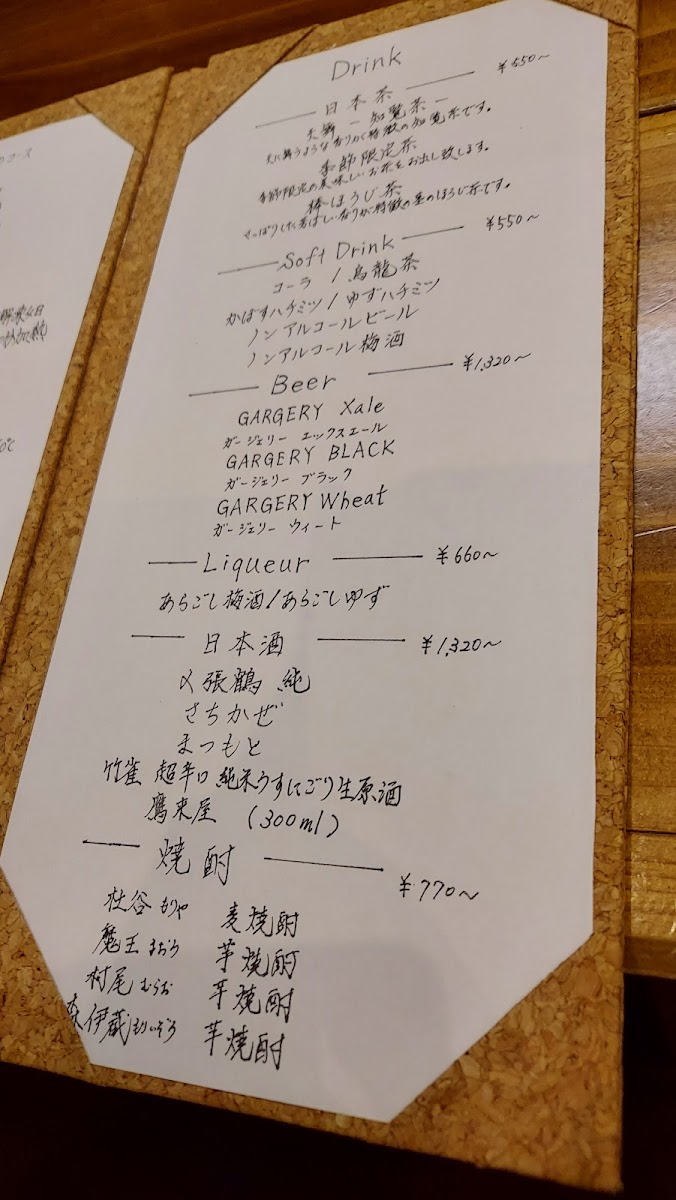 Drink
日本茶 ¥550~
天舞 - 知覧茶 -
天に舞うような香りが特徴の知覧茶です。
季節限定茶
季節限定の美味しいお茶をお出し致します。
棒ほうじ茶
さっぱりした香ばしい香りが特徴の茎のほうじ茶です。
Soft Drink ¥550~
コーラ / 烏龍茶
かぼすハチミツ / ゆずハチミツ
ノンアルコールビール
ノンアルコール梅酒
Beer ¥1,320~
GARGERY Xale
ガージェリー エックスエール
GARGERY BLACK
ガージェリー ブラック
GARGERY Wheat
ガージェリー ウィート
Liqueur ¥660~
あらごし梅酒 / あらごしゆず
日本酒 ¥1,320~
〆張鶴 純
さちかぜ
まつもと
竹雀 超辛口 純米うすにごり生原酒
鷹来屋 (300ml)
焼酎 ¥770~
杜谷 もりや 麦焼酎
魔王 まおう 芋焼酎
村尾 むらお 芋焼酎
森伊蔵 もりいぞう 芋焼酎
コース